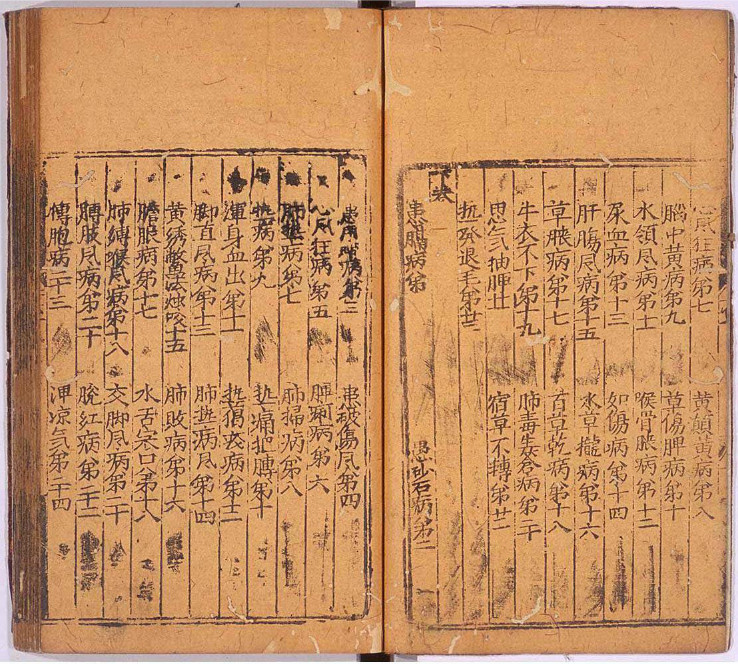 心凨狂病第七　黃顛黃病第八
腦中黃病第九　草傷脾病第十
水領凨病第十一　喉骨脹病第十二
尿血病第十三　如傷病第十四
肝膓凨病第十五　水草攏病第十六
草脹病第十七　百草乾病第十八
牛衣不下第十九　肺毒生瘡病第二十
思气抽脾廿一　宿草不轉第廿二
热發退毛第廿三
下巻
患腦病第一　患砂石病第二
患眼病第三　患破傷凨第四
心凨狂病第五　脾痢病第六
肺热病第七　肺掃病第八
热病第九　热痛把膊第十
渾身血出第十一　热病第十二
脚直凨病第十三　肺热病凨第十四
黃綉鱉法咬十五　肺敗病第十六
膽脹病第十七　水舌口第十八
肺縛喉凨病第十八　交脚凨病第二十
膊肢凨病第二十　脫紅病第二十二
傳胞病二十三　凉气第二十四